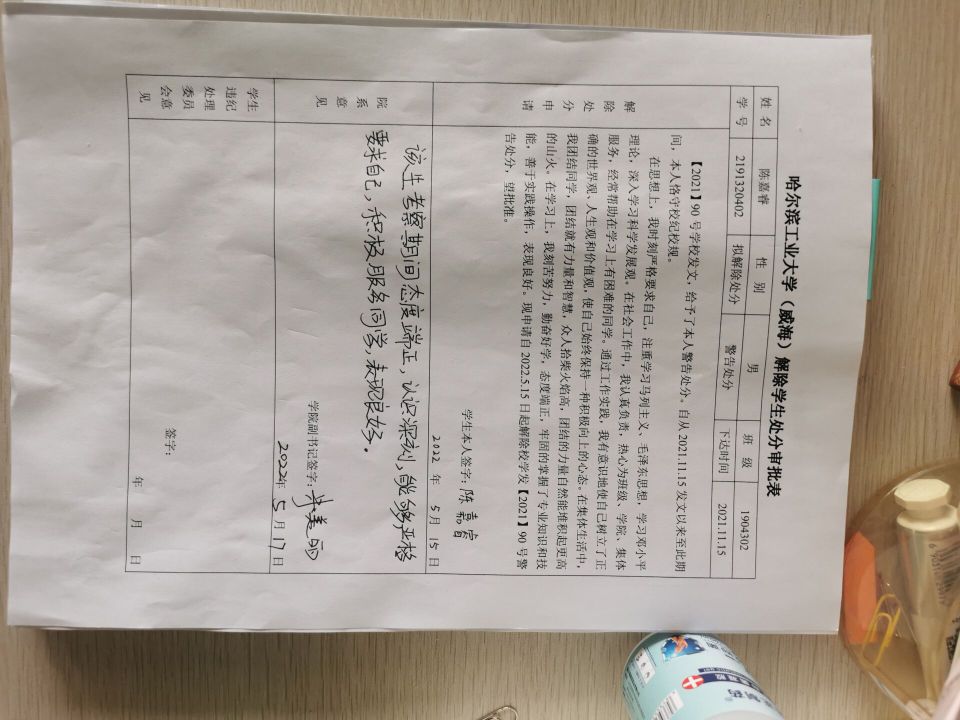 哈尔滨工业大学（威海）解除学生处分审批表
姓 名 陈嘉睿 性 别 男 班 级 1904302
学 号 2191320402 拟解除处分 警告处分 下达时间 2021.11.15
解除处分申请
【2021】90 号学校发文，给予了本人警告处分。自从 2021.11.15 发文以来至此期
间，本人恪守校纪校规。
在思想上，我时刻严格要求自己，注重学习马列主义、毛泽东思想，学习邓小平
理论，深入学习科学发展观。在社会工作中，我认真负责，热心为班级、学院、集体
服务，经常帮助在学习上有困难的同学。通过工作实践，我有意识地使自己树立了正
确的世界观、人生观和价值观，使自己始终保持一种积极向上的心态。在集体生活中，
我团结同学，团结就有力量和智慧，众人拾柴火焰高，团结的力量自然能堆积起更高
的山火。在学习上，我刻苦努力，勤奋好学，态度端正，牢固的掌握了专业知识和技
能，善于实践操作，表现良好。现申请自 2022.5.15 日起解除校学发【2021】90 号警
告处分，望批准。
学生本人签字：陈嘉睿
2022 年 5 月 15 日
院系意见
该生考察期间态度端正，认识深刻，能够严格
要求自己，积极服务同学，表现良好。
学院副书记签字：
2022年 5 月 17 日
学生违纪处理委员会意见
签字：
年 月 日